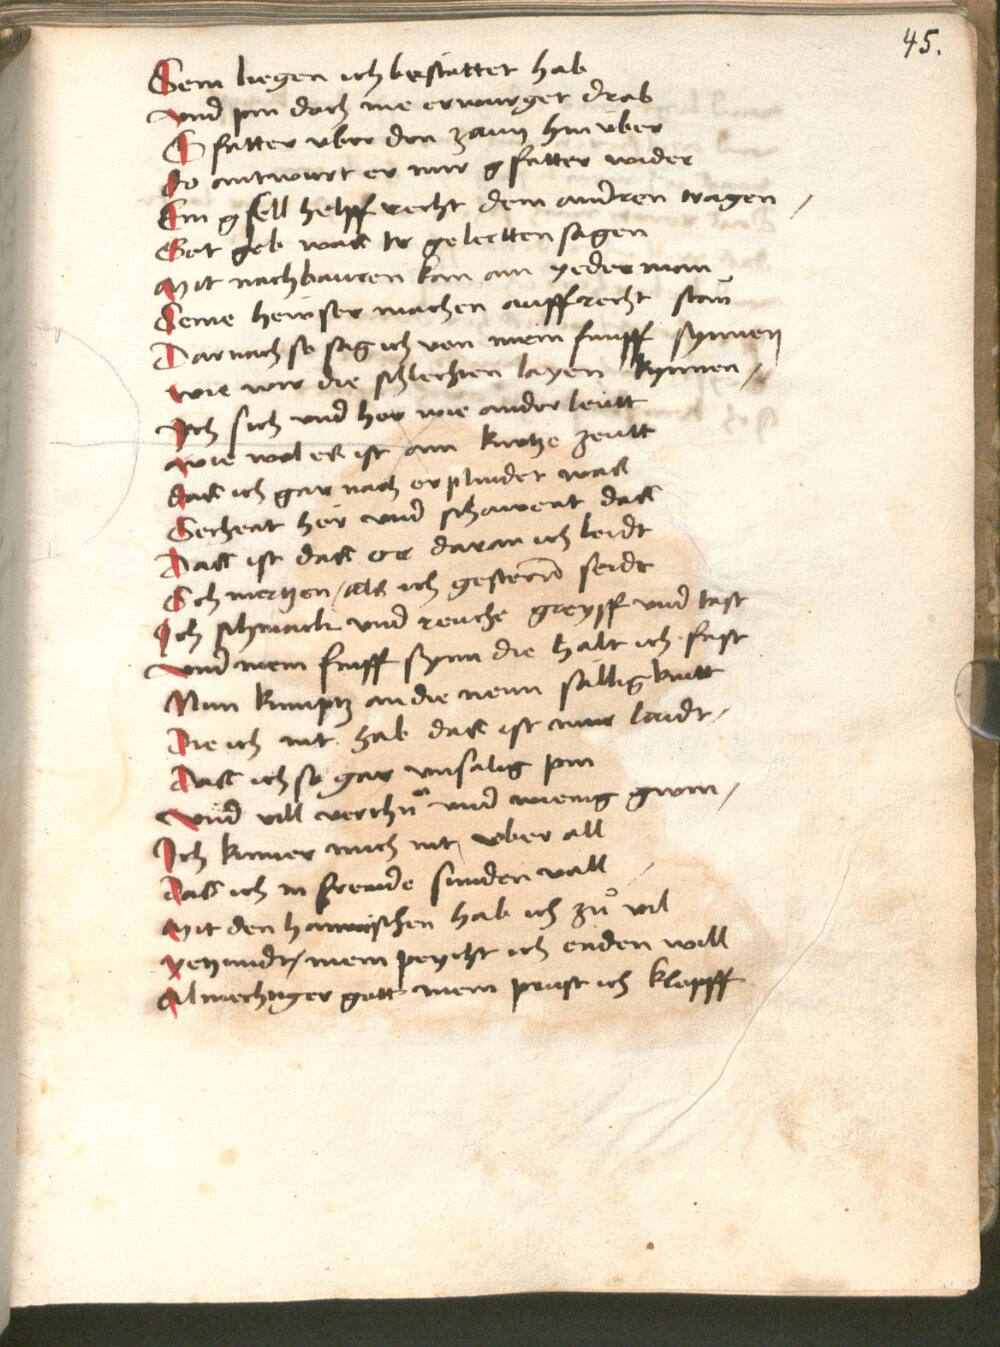 45.
Sein liegen ich bestättet hab
Vnd pin doch nie erwürget drab
G fatter vber den zaun hin vber
do antwurt er mir gfatter wider
Ein gsell helff recht dem andren tragen /
Got geb wass ir gelertten sagen
Mit nachbauren kan ain yederman
Seine heusser machen auffrecht stan
Darnach so sag ich von mein funff synnen
wie wir die schlechten layen kynnen /
Ich sich vnd hör wie ander leutt
wie wol es ist ain kurtze zeutt
dass ich gar nach erplindet wass
Sechent her vnd schawent dass
Dass ist dass or daran ich leidt
Schmertzen / als ich gestern seidt
Ich schmack vnd reuche greyff vnd tast
vnd mein funff synn die halt ich fast
Nun kumptz an die neun sällig keitt
Die ich nit hab dass ist mir laidt /
Dass ich so gar vnsälig pin
vnd vill verthu vnd wienig gwin /
Ich kumer mich nit vber all
Dass ich in fremde sunden vall
Mit den haimischen hab ich zů vil
yetzundt / mein peycht ich enden will
Almechtiger gott mein prust ich klopff